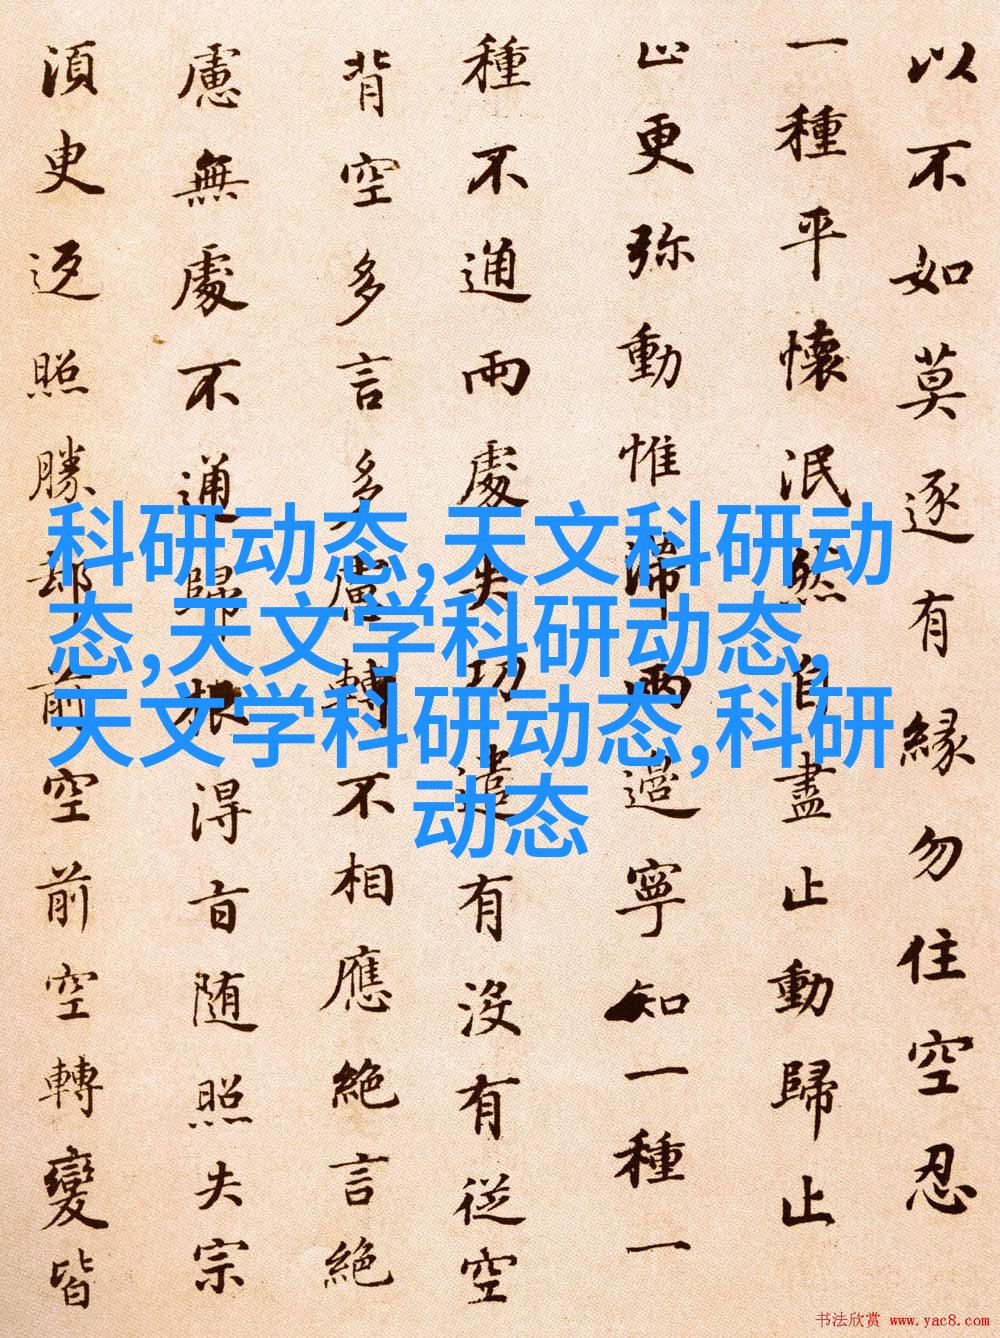 以不如莫逐有緣勿住空忍
一種平懷泯然自盡止動歸止
止更弥動惟滞兩邊寧知一種一
種不通兩處失功遣有没有従空
背空多言多慮轉不相應絶言絶
慮無處不通歸根得旨随照失宗
須臾返照勝却前空前空轉變皆
科研动态,天文科研动
态,天文学科研动态,
天文学科研动态,科研
动态
书法欣赏 www.yac8.com